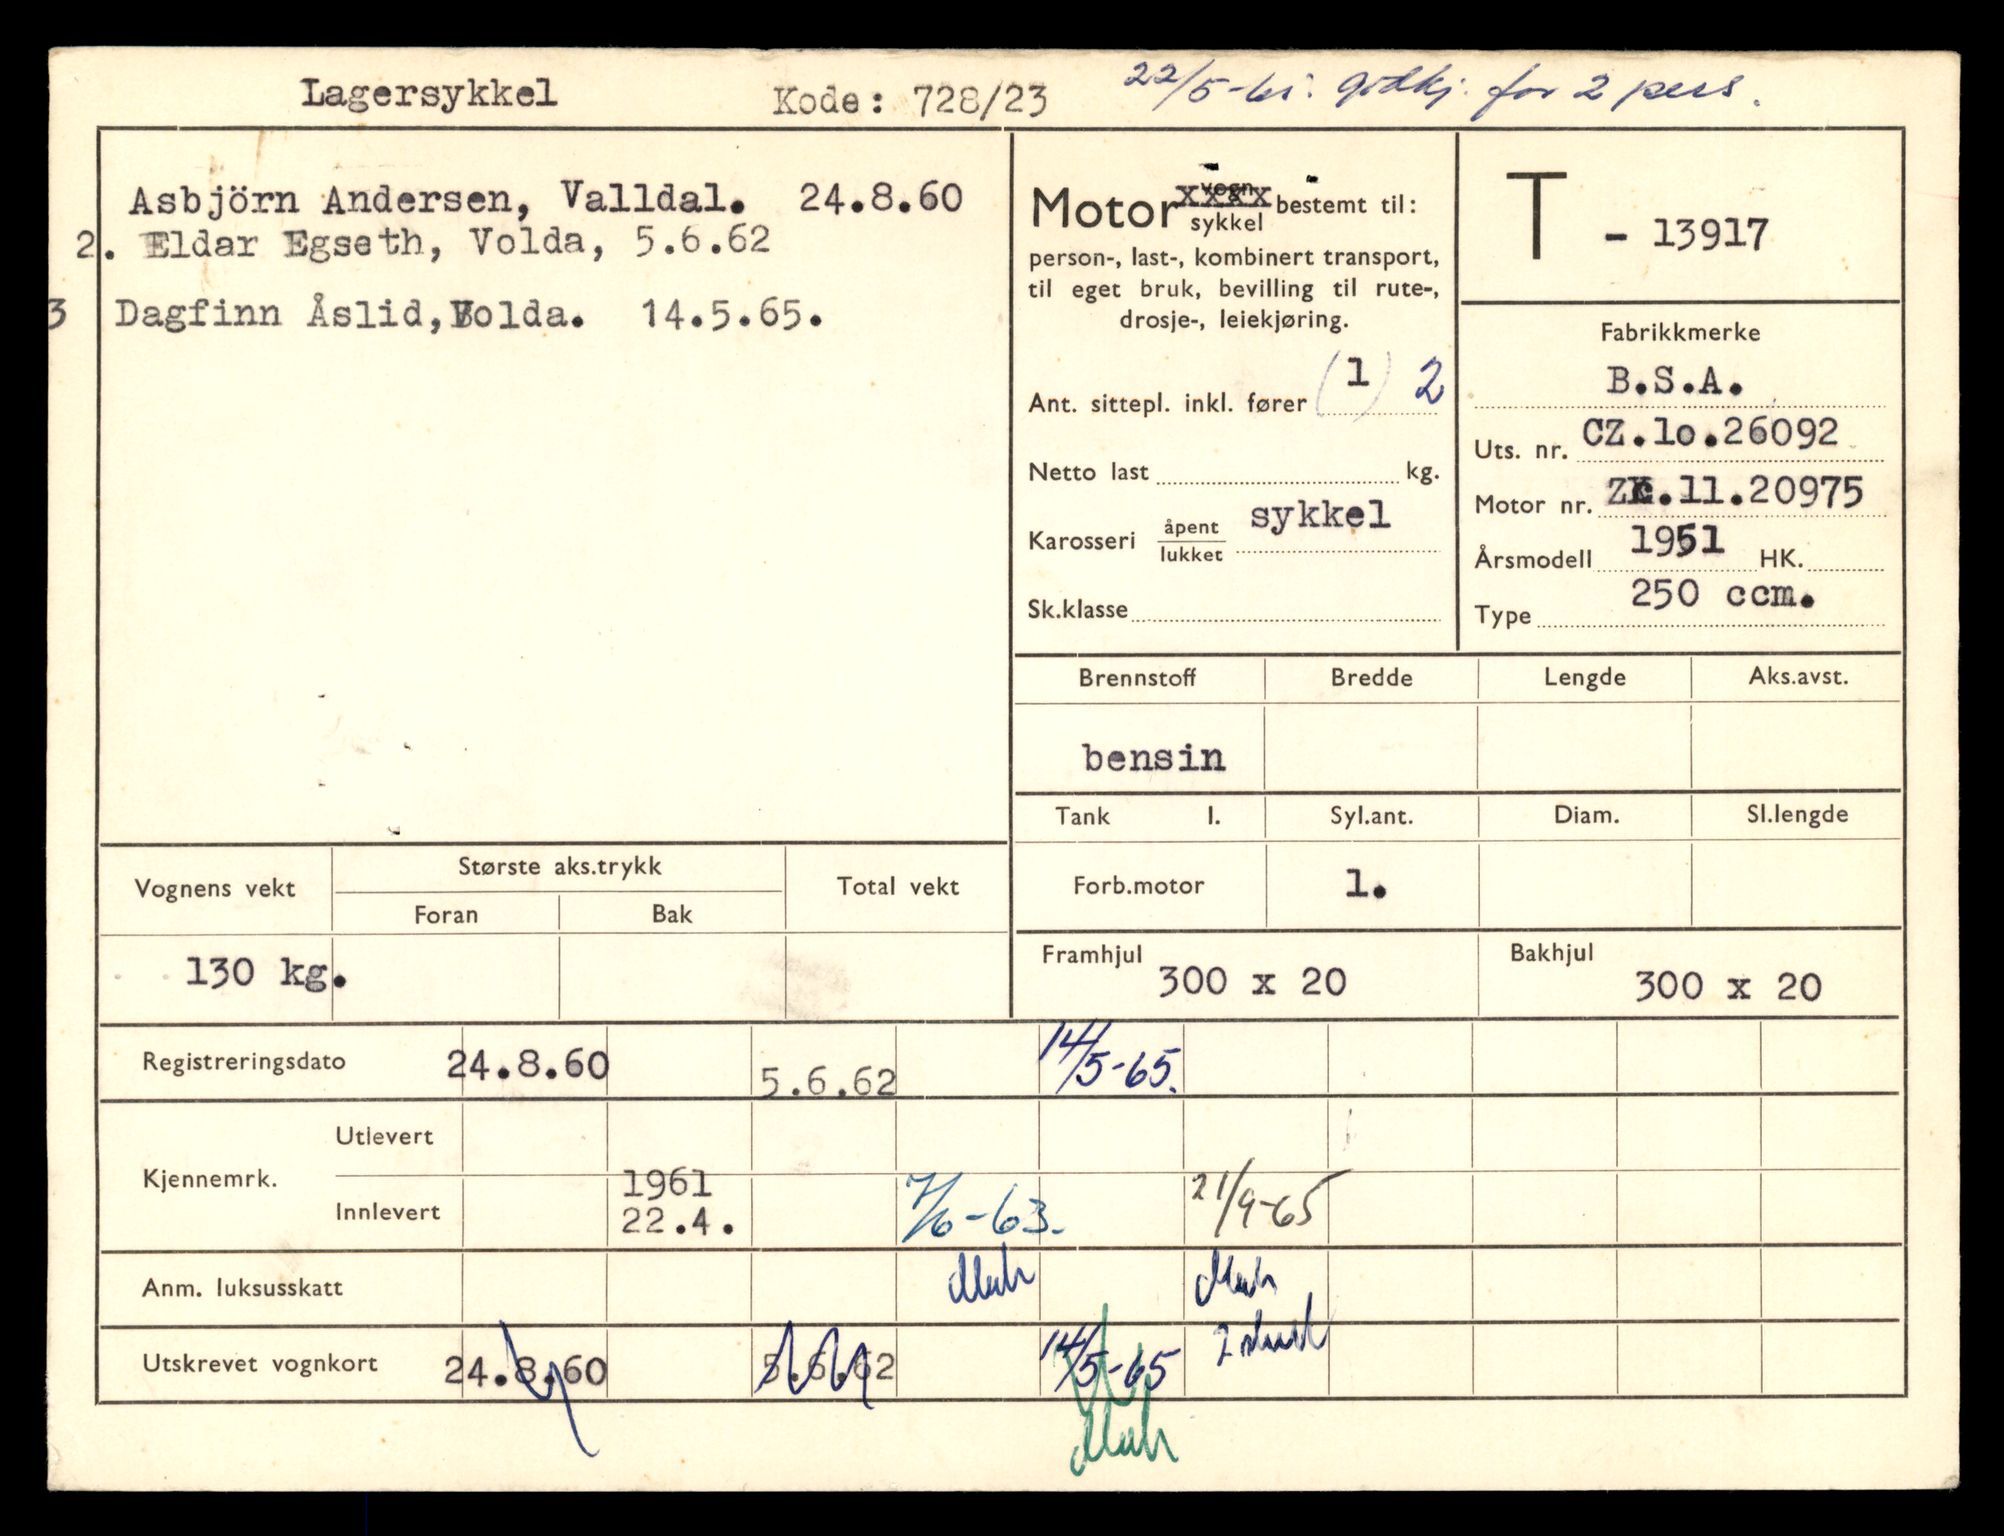 Lagersykkel Kode: 728/23 22/5-61. godkj. for 2 pers.
Asbjörn Andersen, Valldal. 24.8.60
2. Eldar Egseth, Volda, 5.6.62
3 Dagfinn Åslid, Volda. 14.5.65.
Motor vogn xxxx
sykkel bestemt til:
person-, last-, kombinert transport,
til eget bruk, bevilling til rute-,
drosje-, leiekjøring.
Ant. sittepl. inkl. fører (1) 2
Netto last kg.
Karosseri åpent
lukket sykkel
Sk.klasse
T - 13917
Fabrikkmerke
B.S.A.
Uts. nr. CZ.lo.26092
Motor nr. Zc.11.20975
Årsmodell 1951 HK.
Type 250 ccm.
Brennstoff Bredde Lengde Aks.avst.
bensin
Tank l. Syl.ant. Diam. Sl.lengde
Forb.motor 1.
Framhjul 300 x 20 Bakhjul 300 x 20
Vognens vekt Største aks.trykk Total vekt
Foran Bak
130 kg.
Registreringsdato 24.8.60 5.6.62 14/5-65.
Kjennemrk. Utlevert
Innlevert 1961
22.4. 7/6-63. 21/9-65
Anm. luksusskatt
Utskrevet vognkort 24.8.60 5.6.62 14/5-65